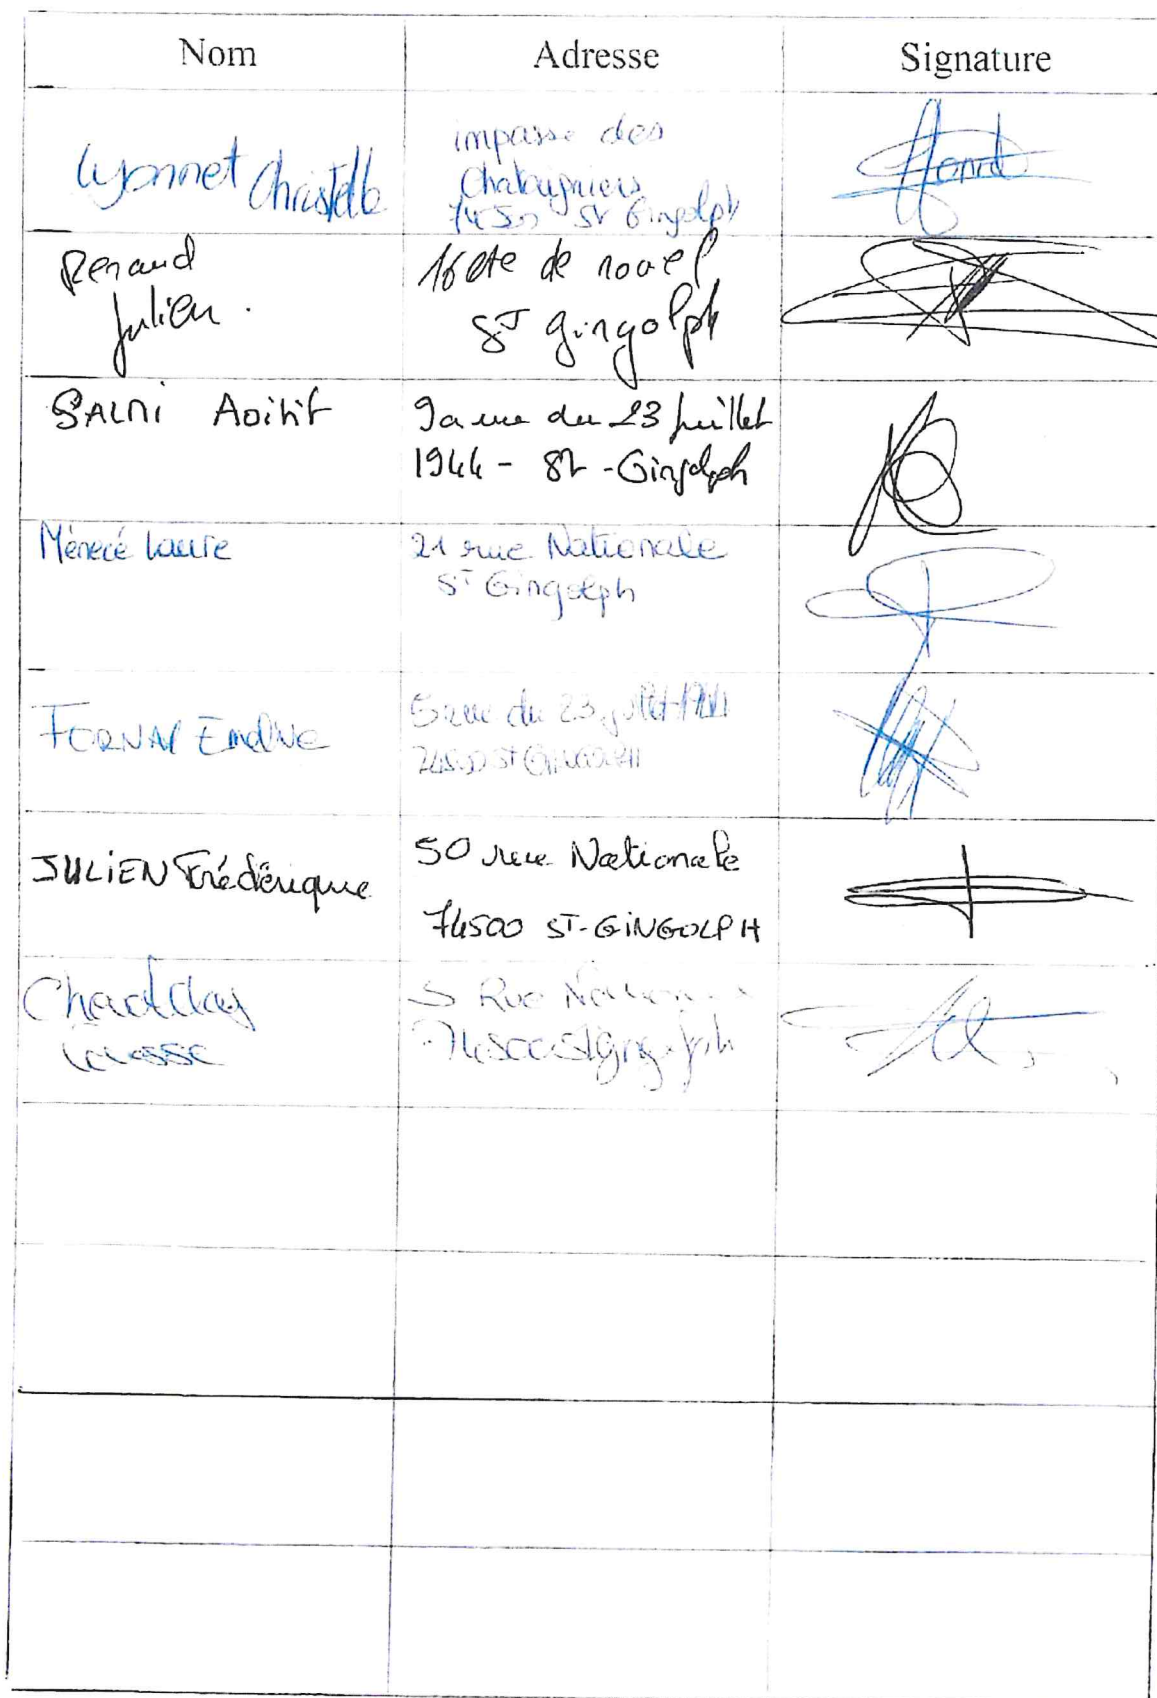 Nom Adresse Signature
Lyonnet Christelle
impasse des
Chataigniers
74500 St Gingolph
Renaud
Julien.
16 rte de novel
ST Gingolph
SALMI
9a rue du 23 Juillet
1944 - St - Gingolph
Ménecé Laurie
21 rue Nationale
ST Gingolph
FORNAY Emeline
5 rue du 23 juillet 1944
74500 ST GINGOLPH
JULIEN Frédérique
50 rue Nationale
74500 ST-GINGOLPH
5 Rue Nationale
74500 St Gingolph